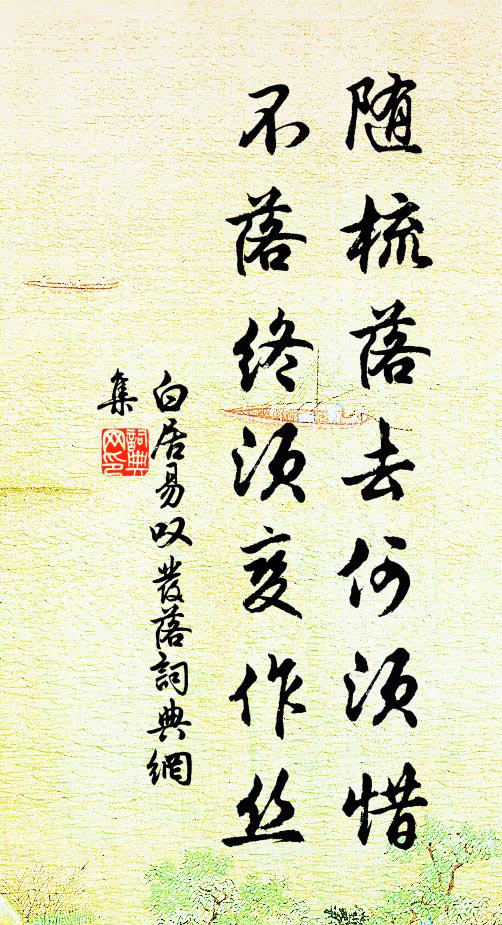 随梳落去何须惜
不落终须变作丝
白居易叹发落词典網
集
詞典
网印